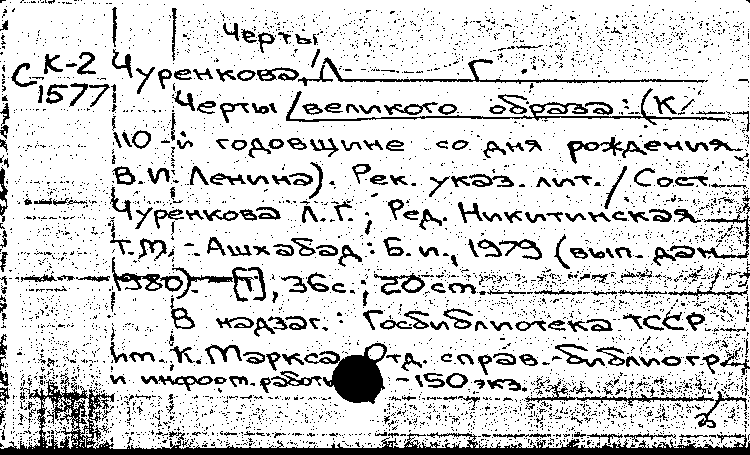 Черты
К-2 Чуренкова, Л. Г.
С 1577 Черты великого образа: (К
110-й годовщине со дня рождения
В.И. Ленина). Рек. указ. лит. / Сост.
Чуренкова Л.Г.; Ред. Никитинская
Т.М. - Ашхабад: Б.и., 1979 (вып. дан.
1980). - [1], 36с.; 20 cm.
В надзаг.: Госбиблиотека ТССР
им. К.Маркса. Отд. справ.-библиогр.
и информ. работы - 150 экз.